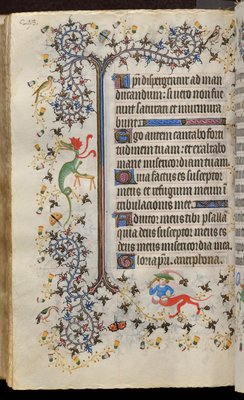 Ipi dispergentur ad man
ducandum: si vero non fue
rint saturati et murmura
bunt.
Ego autem cantabo forti
tudinem tuam: et exaltabo
mane misericordiam tuam.
Quia factus es susceptor
meus et refugium meum i
tribulationis mee.
Adiutor meus tibi psallā
quia deus susceptor meus es
deus meus misericordia mea
Gloria pr̄i. antiphona.